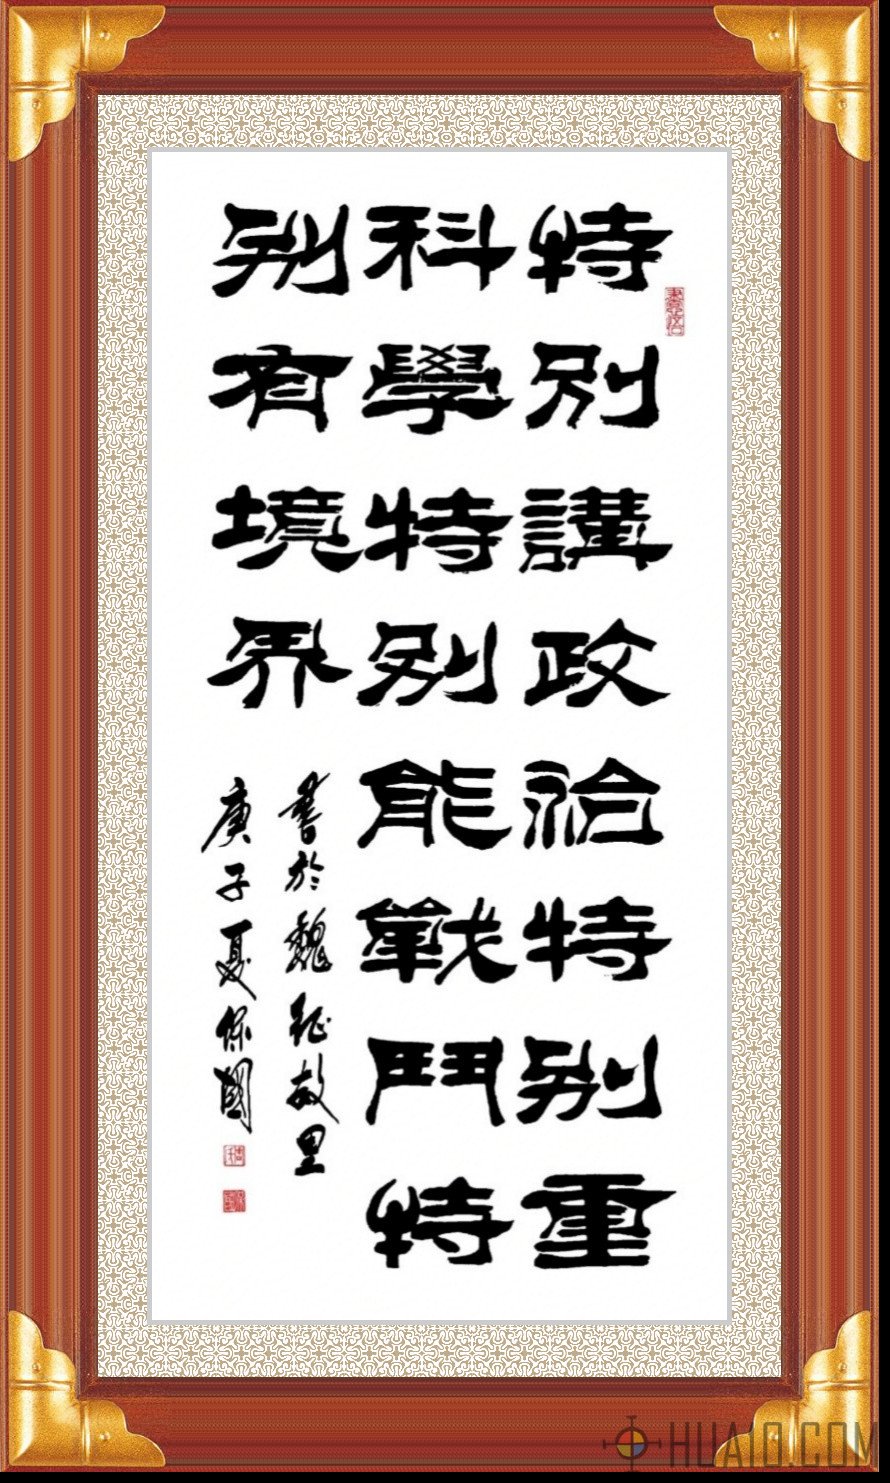 特別講政治特別重
科學特別能戰鬥特
別有境界
書於魏征故里
庚子夏保國
HUA10.COM